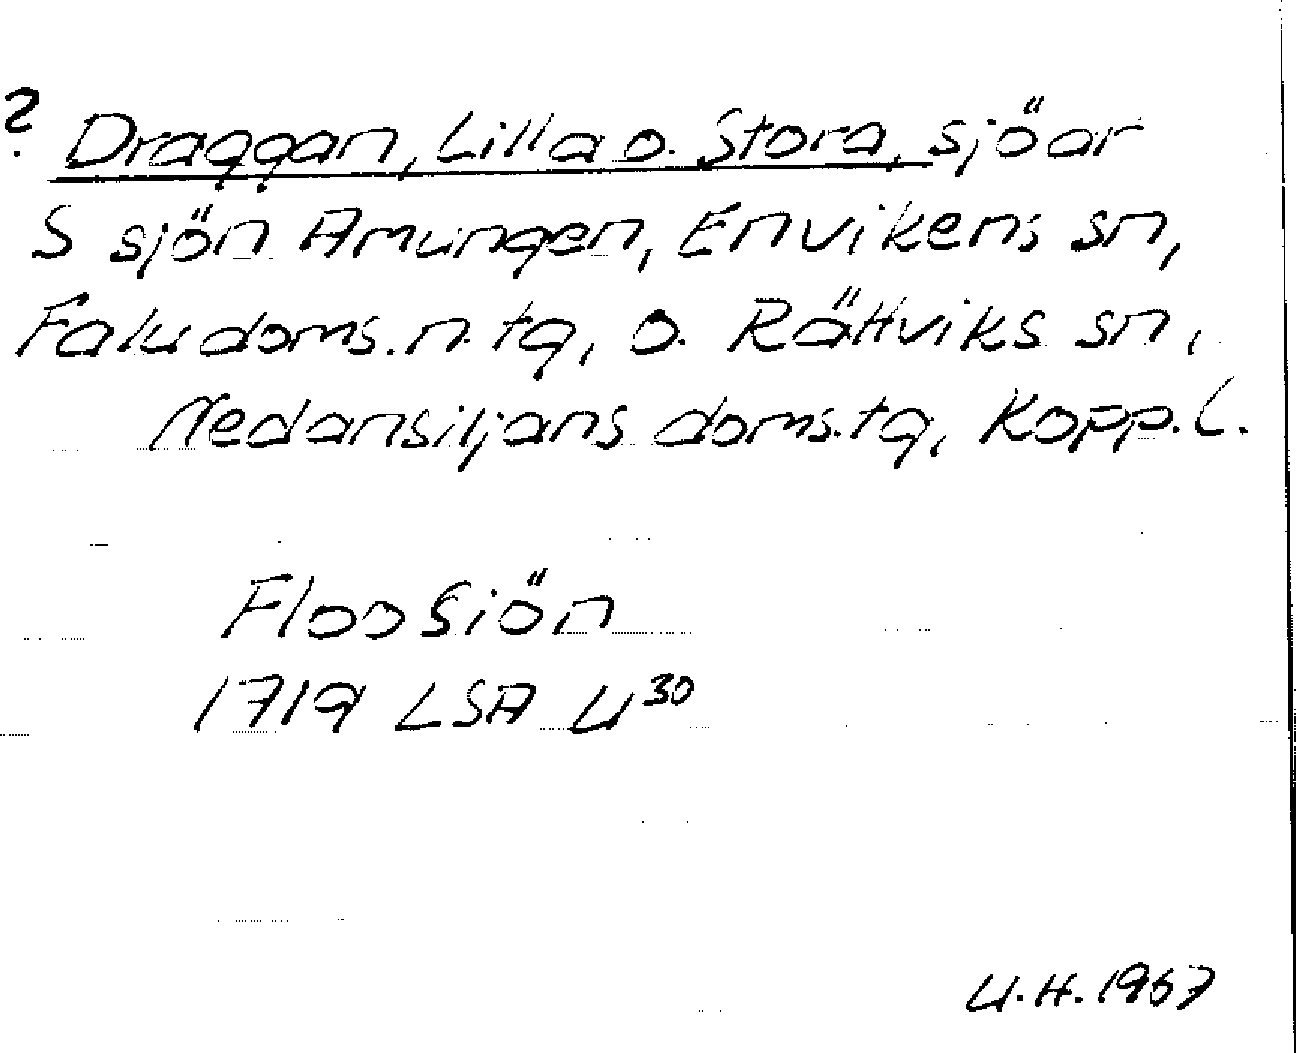 ? Draggan, Lilla o. Stora, sjöar
S sjön Amungen, Envikens sn,
Falu doms. n. tg, o. Rättviks sn,
Nedansiljans doms. tg, Kopp. l.
Floo Siön
1719 LSA U30
U.H. 1967